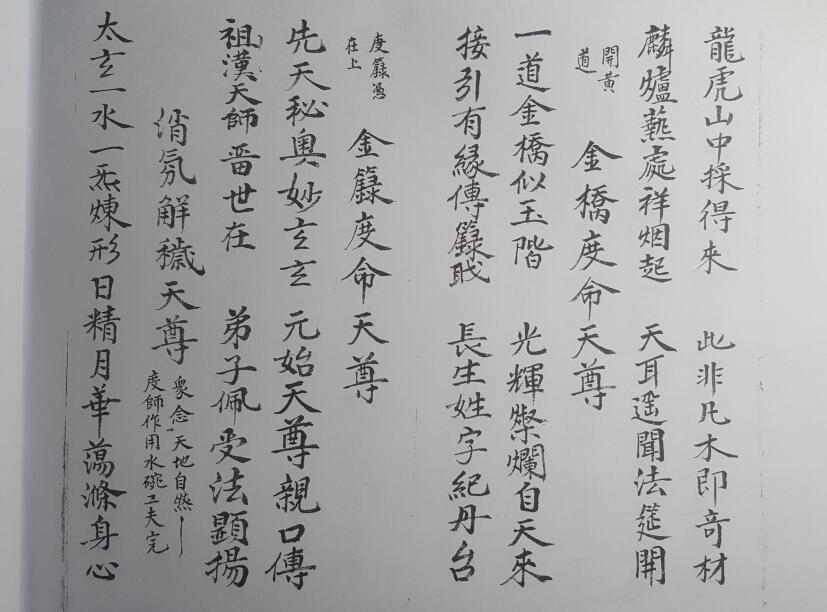 龍虎山中採得来 此非凡木即奇材
麟爐爇處祥烟起 天耳遥聞法筵開
開黄道 金橋度命天尊
一道金橋似玉階 光輝燦爛自天来
接引有緣傳籙職 長生姓字紀丹台
度籙憑在上 金籙度命天尊
先天秘奥妙玄玄 元始天尊親口傳
祖漢天師晋世在 弟子佩受法顕揚
消氛解穢天尊 衆念天地自然
度師作用水碗工夫完
太玄一水一炁煉形日精月華蕩滌身心